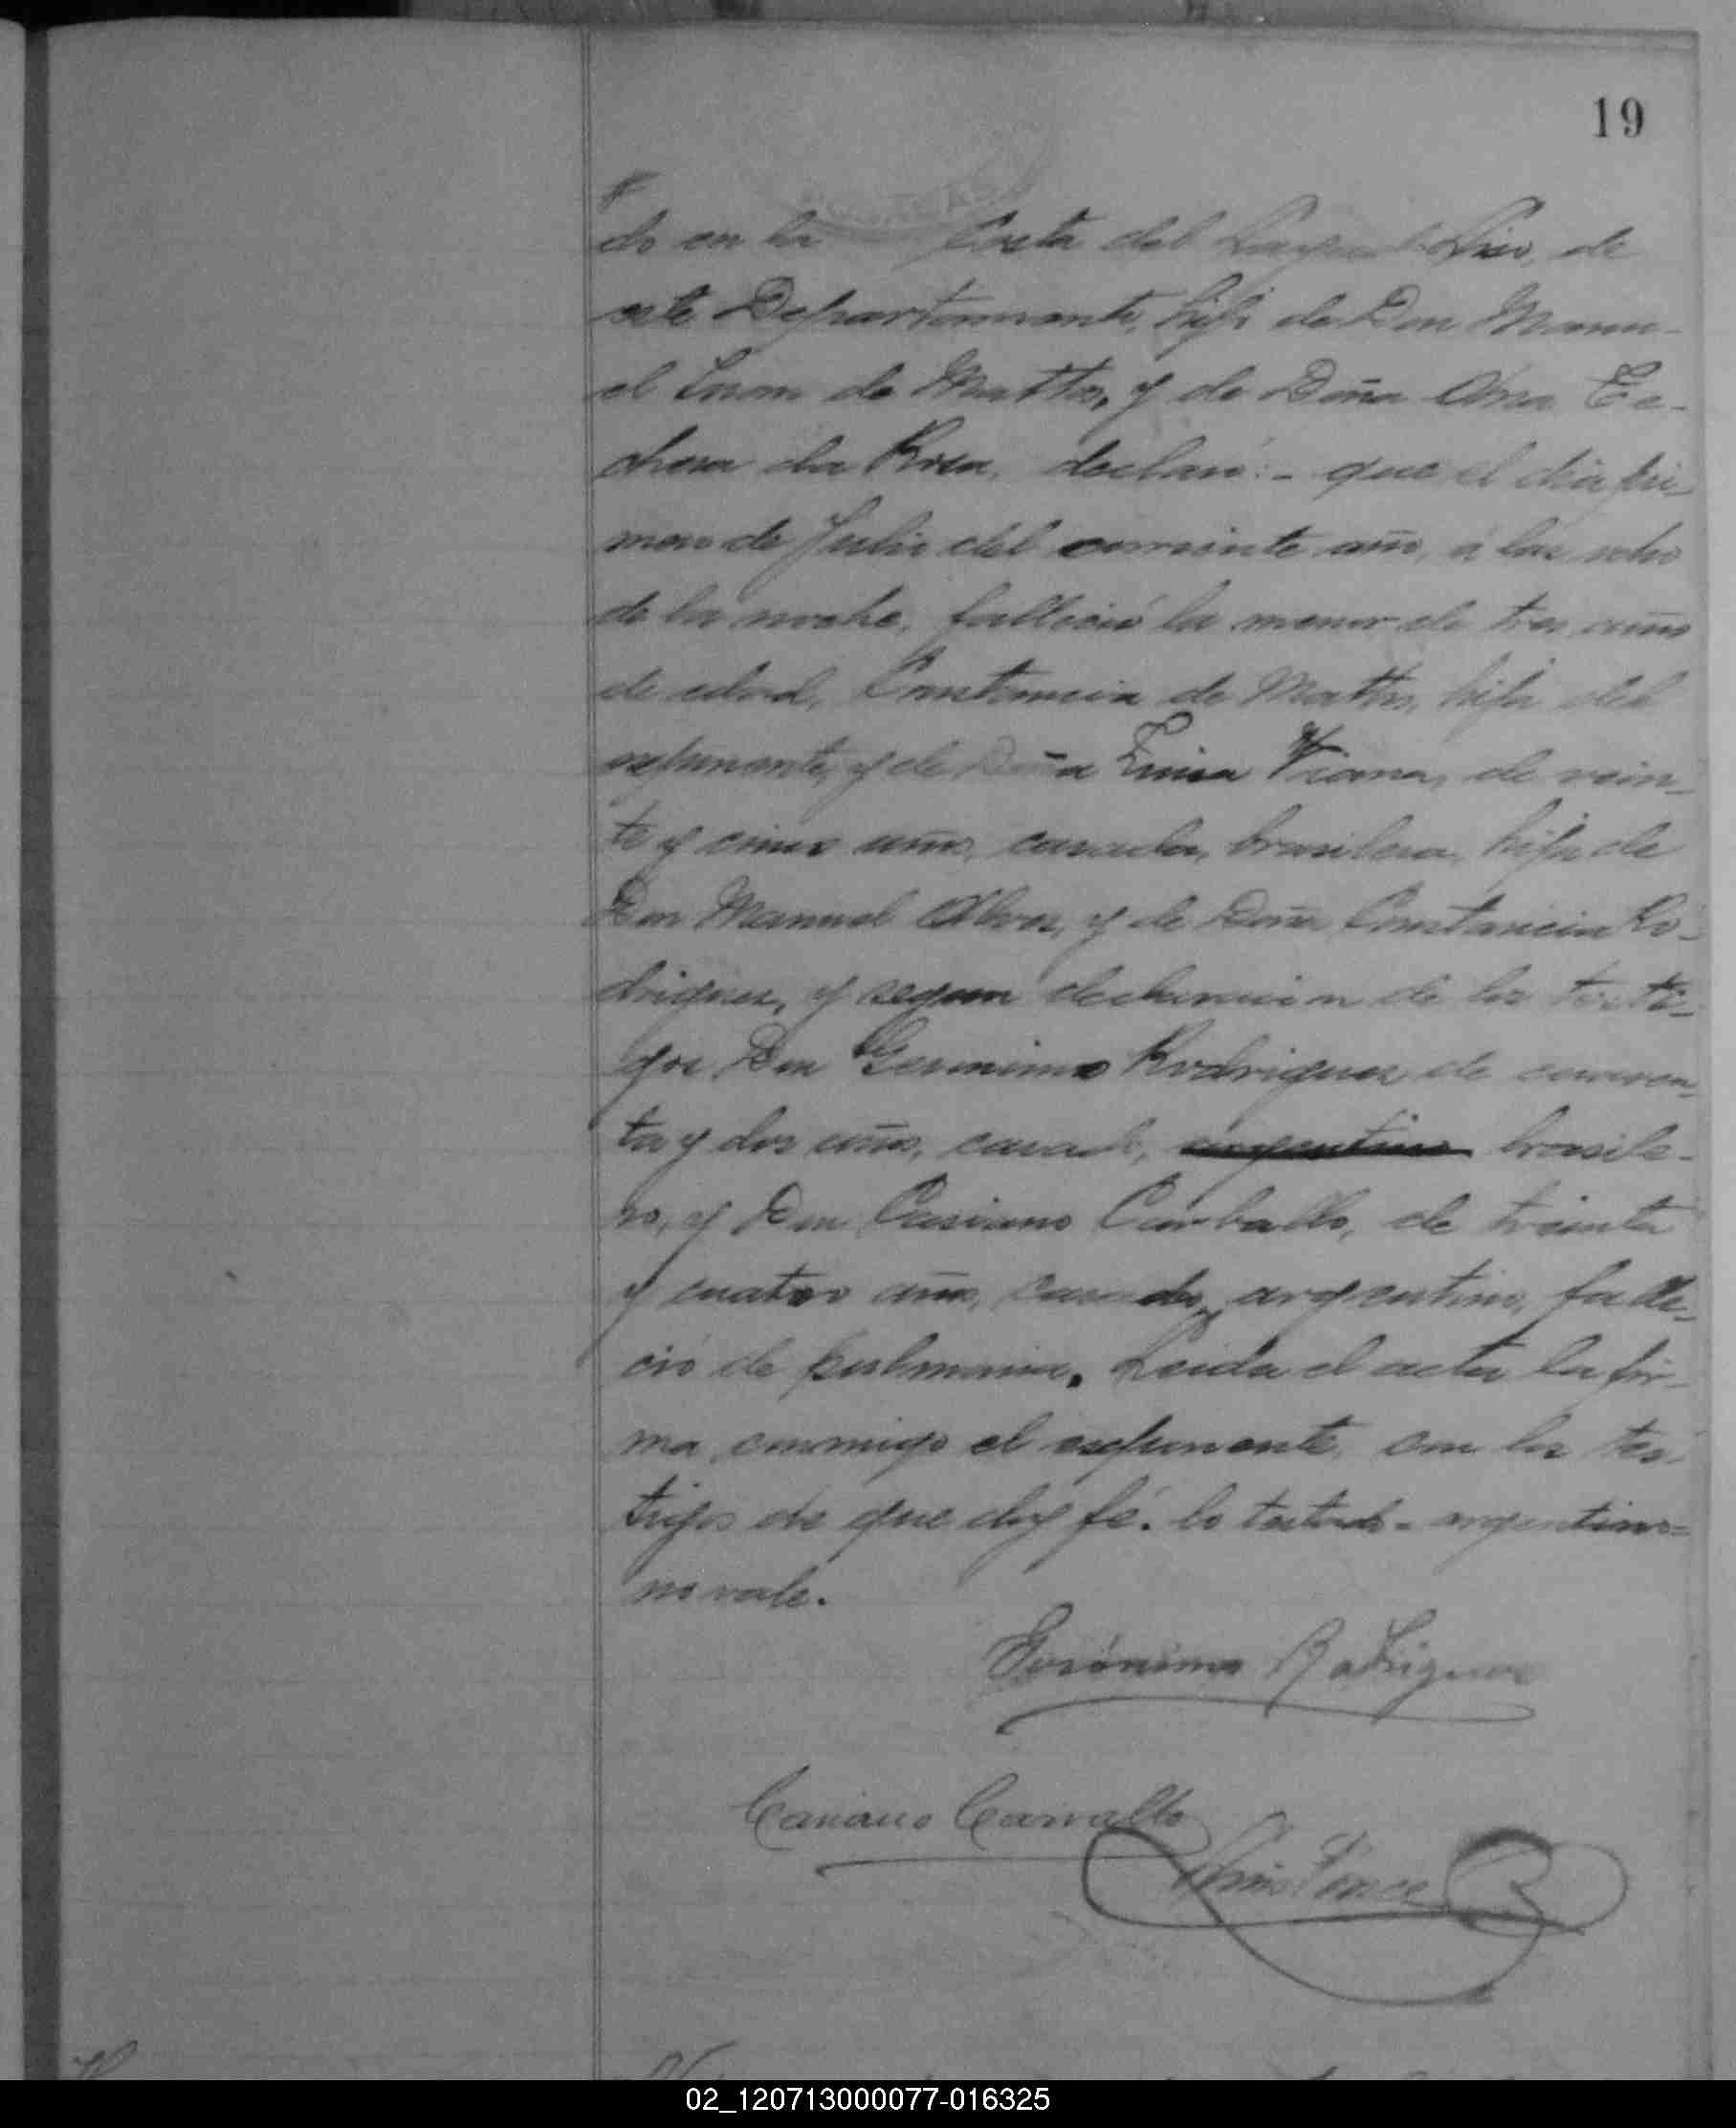 19
do en la Costa del de
este Departamento, hijo de Don Manu-
el de Mattos, y de Doña Ana
da Rosa, declaró:- que el dia pri-
mero de Julio del corriente año, á las ocho
de la noche, falleció la menor de tres años
de edad, Constancia de Mattos, hija del
esponente, y de Doña Luisa Viana, de vein-
te y cinco años, casada, brasilera, hija de
Don Manuel Alves, y de Doña Constancia Ro-
driguez, y segun declaracion de los testi-
gos Don Geronimo Rodriguez de cuaren-
ta y dos años, casado, argentino brasile-
ro, y Don Casiano Carballo, de treinta
y cuatro años, casado, argentino, falle-
ció de pulmonia. Leida el acta la fir-
ma conmigo el esponente, con los tes-
tigos de que doy fé. lo testado - argentino =
no vale.
Gerónimo Rodriguez
Casiano Carvallo
Ponce
02_120713000077-016325